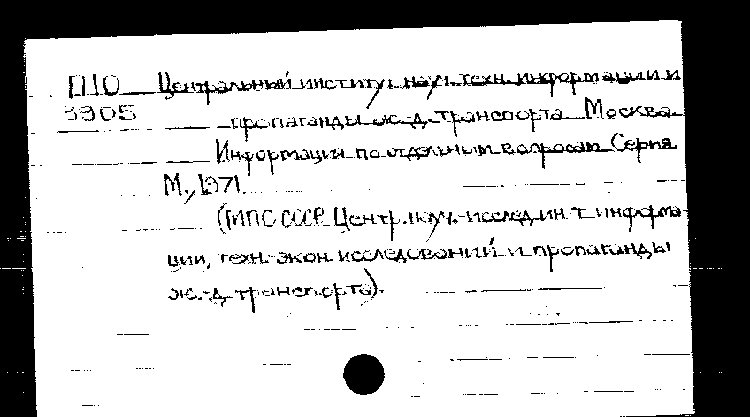 П10 Центральный институт науч. техн. информации и
3905 пропаганды ж.-д. транспорта. Москва.
Информация по отдельным вопросам. Серия
М., 1971.
(МПС СССР. Центр. науч.-исслед. ин-т информа-
ции, техн.-экон. исследований и пропаганды
ж.-д. транспорта).